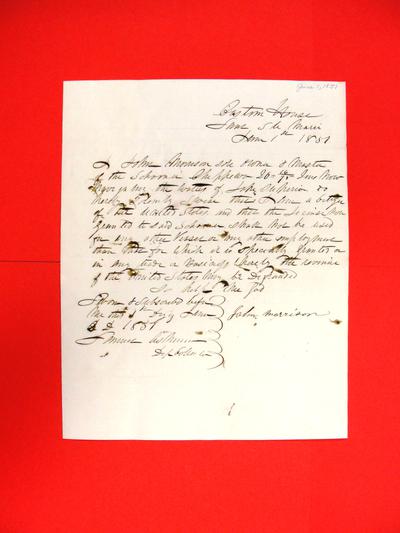 June 1, 1851
Custom House
Saut Ste Marie
June 1st 1851
I John Morrison sole owner & Master
of the Schooner Chippewa do
the waters of Lake Superior do
Solemnly Swear that I am a citizen
of the United States and that the License now
Granted to Said Schooner Shall not be used
for any other Vessel or any other employment
than that for which it is Specially Granted or
in any trade or Business whereby the revenue
of the United States may be Defrauded
So help me God
Sworn & Subscribed before
me this 1st day of June
A D 1851
John Morrison
Samuel Ashmun
Dep Collector